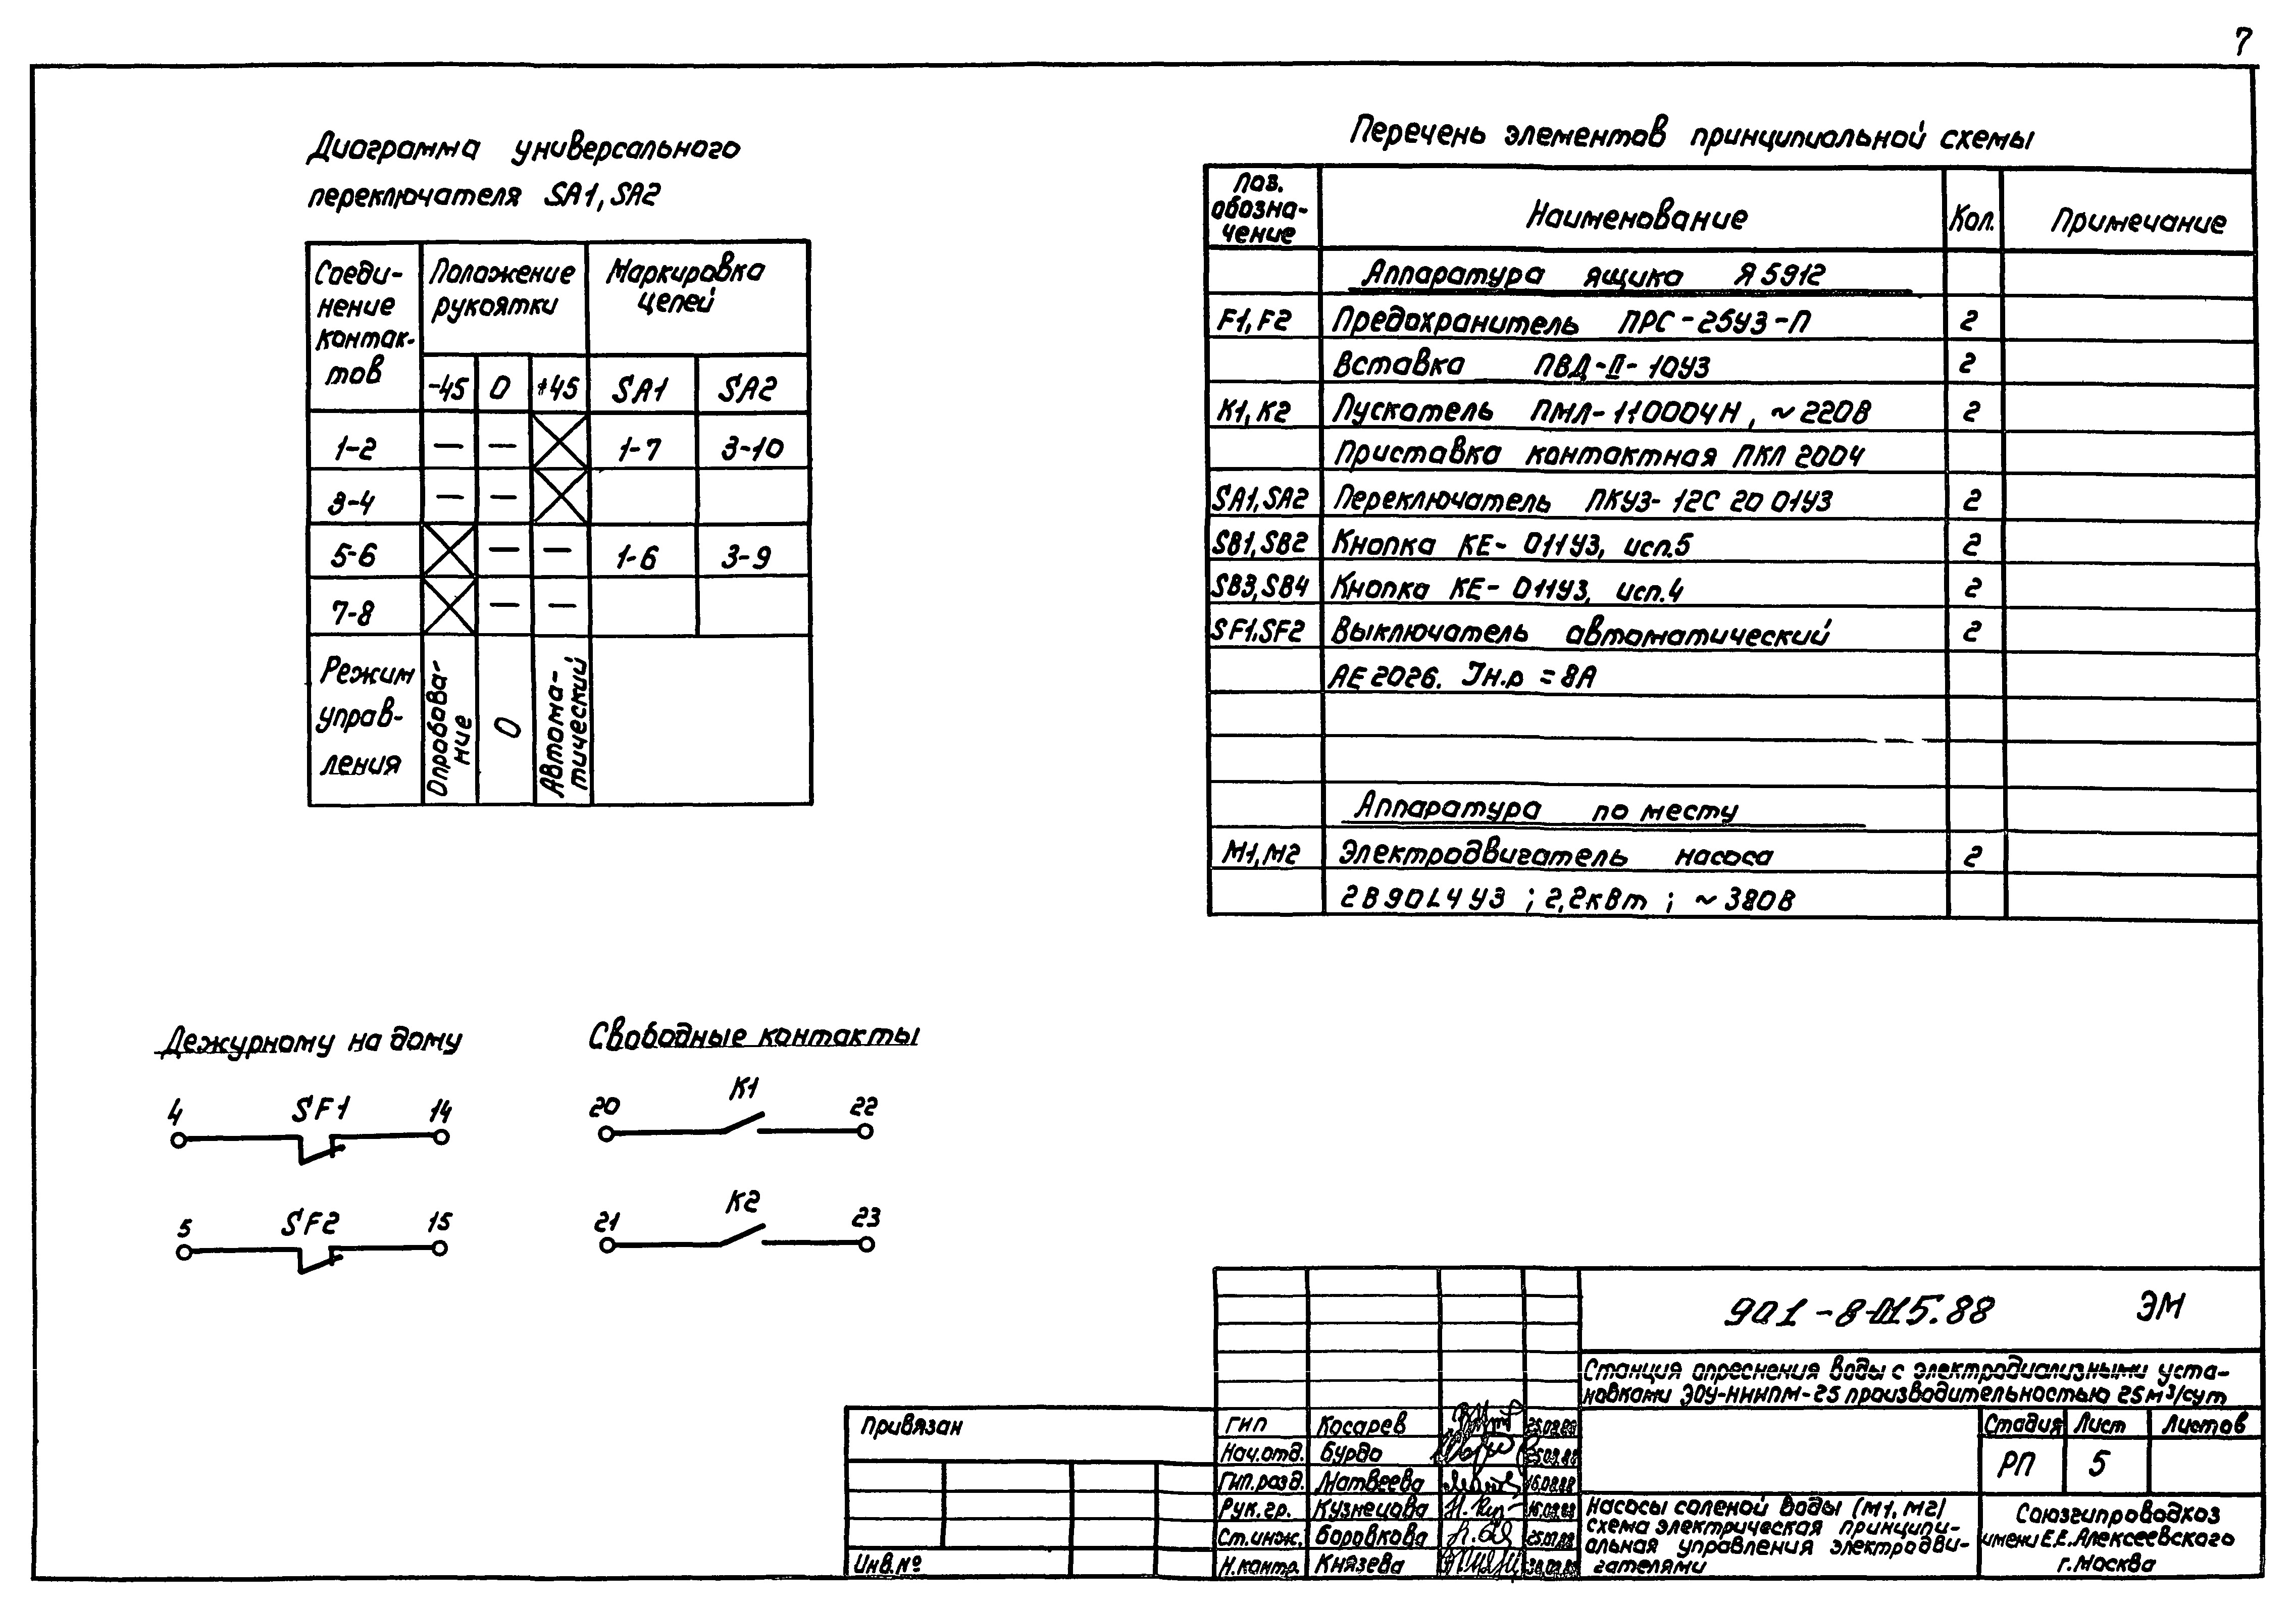 7
Диаграмма универсального
переключателя SA1, SA2
Соеди-
нение
контак-
тов
Положение
рукоятки
Маркировка
цепей
-45 0 +45 SA1 SA2
1-2 — — 1-7 3-10
3-4 — —
5-6 — — 1-6 3-9
7-8 — —
Режим
управ-
ления
Опробова-
ние
0
Автома-
тический
Перечень элементов принципиальной схемы
Поз.
обозна-
чение
Наименование
Кол.
Примечание
Аппаратура ящика Я5912
F1, F2 Предохранитель ПРС-25У3-П 2
Вставка ПВД-II-10У3 2
K1, K2 Пускатель ПМЛ-110004Н, ~220В 2
Приставка контактная ПКЛ 2004
SA1, SA2 Переключатель ПКУ3-12С 20 01У3 2
SB1, SB2 Кнопка КЕ-011У3, исп.5 2
SB3, SB4 Кнопка КЕ-011У3, исп.4 2
SF1. SF2 Выключатель автоматический 2
АЕ 2026. Iн.р = 8А
Аппаратура по месту
М1, М2 Электродвигатель насоса 2
2В90L4У3 ; 2,2кВт ; ~380В
Дежурному на дому
4 SF1 14
5 SF2 15
Свободные контакты
20 K1 22
21 K2 23
901-8-015.88 ЭМ
Станция опреснения воды с электродиализными уста-
новками ЭОУ-НИИПМ-25 производительностью 25м³/сут
Привязан
Инв.№
ГИП Косарев
Нач.отд. Бурдо
Гип.разд. Матвеева
Рук.гр. Кузнецова
Ст.инж. Боровкова
Н.контр. Князева
Стадия Лист Листов
РП 5
Насосы соленой воды (М1, М2)
схема электрическая принципи-
альная управления электродви-
гателями
Союзгипроводхоз
имени Е.Е.Алексеевского
г.Москва